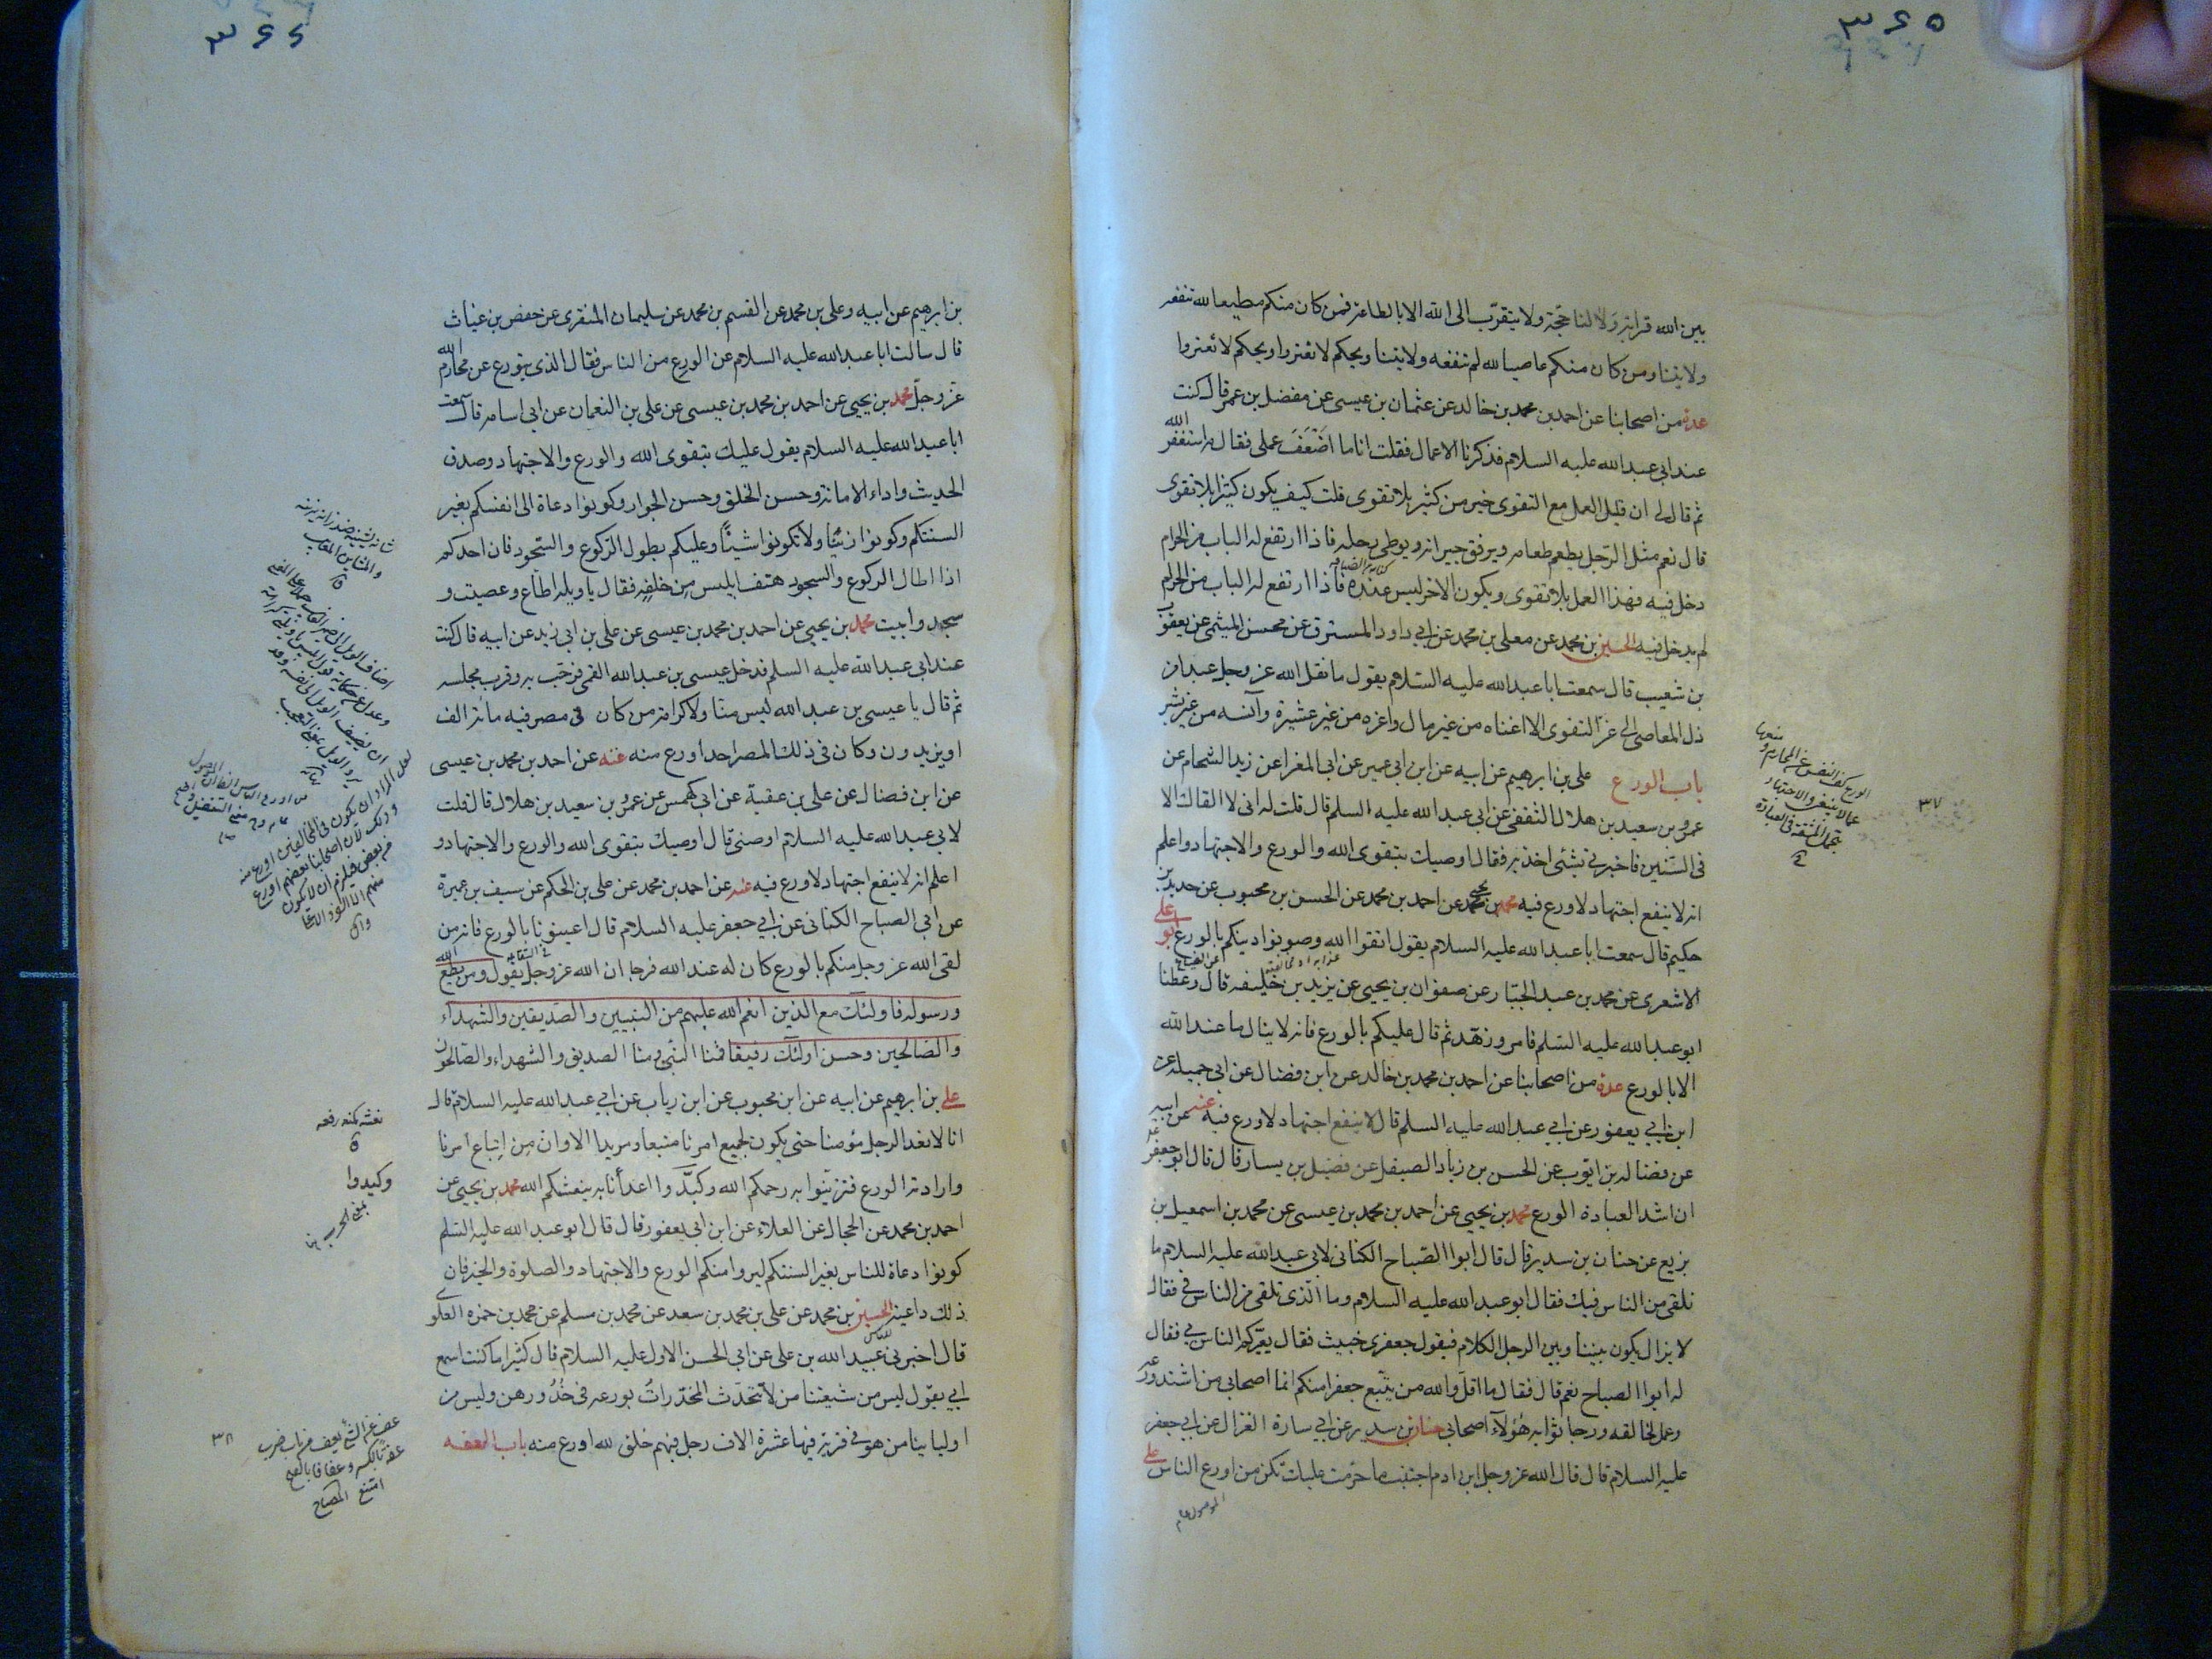 ٣٤٥
بين الله قرابة ولا لنا حجة ولا يتقرّب الى الله الا بالطاعة فمن كان منكم مطيعا لله تنفعه
ولايتنا ومن كان منكم عاصيا لله لم تنفعه ولايتنا ويحكم لا تغتروا ويحكم لا تغتروا
عدة من اصحابنا عن احمد بن محمد بن خالد عن عثمان بن عيسى عن مفضل بن عمر قال كنت
عند ابى عبد الله عليه السلام فذكرنا الاعمال فقلت انا ما اضْعَفَ عملى فقال مه استغفر الله
ثم قال لى ان قليل العمل مع التقوى خير من كثير بلا تقوى قلت كيف يكون كثيرا بلا تقوى
قال نعم مثل الرّجل يطعم طعامه ويرفق جيرانه ويوطى رحله فاذا ارتفع له الباب من الحرام
دخل فيه فهذا العمل بلا تقوى ويكون الاخر ليس عنده فاذا ارتفع له الباب من الحرام
لم يدخل فيه الحسين بن محمد عن معلى بن محمد عن ابي داود المسترق عن محسن الميثمى عن يعقوب
بن شعيب قال سمعت ابا عبد الله عليه السلام يقول ما نقل الله عز وجل عبدا من
ذل المعاصى الى عزّ التقوى الا اغناه من غير مال واعزه من غير عشيرة وآنسه من غير بشر
باب الورع على بن ابرهيم عن ابيه عن ابن ابى عمير عن ابى المغرا عن زيد الشحام عن
عمرو بن سعيد بن هلال الثقفى عن ابى عبد الله عليه السلم قال قلت له انى لا القاك الا
فى السّنين فاخبرنى بشئى اخذ به فقال اوصيك بتقوى الله والورع والاجتهاد واعلم
انه لا ينفع اجتهاد لا ورع فيه محمد بن يحيى عن احمد بن محمد عن الحسن بن محبوب عن حديد بن
حكيم قال سمعت ابا عبد الله عليه السلام يقول اتقوا الله وصونوا دينكم بالورع ابو على
الاشعرى عن محمد بن عبد الجبّار عن صفوان بن يحيى عن يزيد بن خليفه قال وعظنا
ابو عبد الله عليه السّلم فامر وزهّد ثم قال عليكم بالورع فانه لا ينال ما عند الله
الا بالورع عدة من اصحابنا عن احمد بن محمد بن خالد عن ابن فضال عن ابى جميله عن
ابن ابي يعفور عن ابي عبد الله عليه السلم قال لا ينفع اجتهاد لا ورع فيه عنه عن ابيه
عن فضاله بن ايوب عن الحسن بن زياد الصيقل عن فضيل بن يسار قال قال ابو جعفر
ان اشد العبادة الورع محمد بن يحيى عن احمد بن محمد بن عيسى عن محمد بن اسمعيل بن
بزيع عن حنان بن سدير قال قال ابوا الصّباح الكنانى لابى عبد الله عليه السلام ما
نلقى من الناس فيك فقال ابو عبد الله عليه السلام وما الّذى تلقى من الناس فى فقال
لا يزال يكون بيننا وبين الرجل الكلام فيقول جعفرى خبيث فقال يعيّركم الناس بى فقال
له ابوا الصباح نعم قال فقال ما اقلّ والله من يتّبع جعفرا منكم انما اصحابى من اشتد ورعه
وعمل لخالقه ورجا ثوابه هؤلآء اصحابى حنان بن سدير عن ابي سارة الغزال عن ابي جعفر
عليه السلام قال قال الله عز وجل ابن ادم اجتنب ما حرّمت عليك تكن من اورع الناس على
الورع كف النفس عن المحارم و منعها
عما لا ينبغى والاجتهاد
تحمل المشقة فى العبادة
٣٧
٣٤٦
بن ابرهيم عن ابيه وعلى بن محمد عن القسم بن محمد عن سليمان المنقرى عن حفص بن غياث
قال سالت ابا عبد الله عليه السلام عن الورع من الناس فقال الذى يتورع عن محارم الله
عزّ وجلّ محمد بن يحيى عن احمد بن محمد بن عيسى عن على بن النعمان عن ابى اسامه قال سمعت
ابا عبد الله عليه السلام يقول عليك بتقوى الله والورع والاجتهاد وصدق
الحديث واداء الامانة وحسن الخلق وحسن الجوار وكونوا دعاة الى انفسكم بغير
السنتكم وكونوا زينًا ولا تكونوا شينًا وعليكم بطول الرّكوع والسّجود فان احدكم
اذا اطال الركوع والسجود هتف ابليس مِن خلفه فقال يا ويله اطاع وعصيت و
سجد وابيت محمد بن يحيى عن احمد بن محمد بن عيسى عن على بن ابى زيد عن ابيه قال كنت
عند ابى عبد الله عليه السلم فدخل عيسى بن عبد الله القمى فرحّب به وقرب مجلسه
ثم قال يا عيسى بن عبد الله ليس منا ولا كرامة من كان فى مصر فيه مائة الف
او يزيدون وكان فى ذلك المصر احد اورع منه عنه عن احمد بن محمد بن عيسى
عن ابن فضال عن على بن عقبة عن ابى كهمس عن عمرو بن سعيد بن هلال قال قلت
لابى عبد الله عليه السلام اوصنى قال اوصيك بتقوى الله والورع والاجتهاد و
اعلم انه لا ينفع اجتهاد لا ورع فيه عنه عن احمد بن محمد عن على بن الحكم عن سيف بن عميرة
عن ابى الصباح الكنانى عن ابي جعفر عليه السلام قال اعينونا بالورع فانه من
لقى الله عز وجل منكم بالورع كان له عند الله فرجا ان الله عز وجل يقول ومن يطع الله
ورسوله فاولئك مع الذين انعم الله عليهم من النبيين والصّديقين والشهداء
والصّالحين وحسن اولئك رفيقا فمنا النّبى ومنا الصديق والشهداء والصّالحون
على بن ابرهيم عن ابيه عن ابن محبوب عن ابن رياب عن ابي عبد الله عليه السلام قال
انا لا نعد الرجل مؤمنا حتى يكون لجميع امرنا متبعا ومريدا الا وان مِن اتباع امرنا
وارادته الورع فتزيّنوا به رحمكم الله وكبّدوا اعدأنا به ينعشكم الله محمد بن يحيى عن
احمد بن محمد عن الحجال عن العلاء عن ابن ابى يعفور قال قال ابو عبد الله عليه السّلم
كونوا دعاة للناس بغير السنتكم ليروا منكم الورع والاجتهاد والصلوة والخير فان
ذلك داعية الحسين بن محمد عن على بن محمد بن سعد عن محمد بن مسلم عن محمد بن حمزه العلوى
قال اخبرنى عبيد الله بن على عن ابى الحسن الاول عليه السلام قال كثيرا ما كنت اسمع
ابي يقول ليس من شيعتنا من لا تتحدّث المخدّراتُ بورعه فى خُدُورهن وليس من
اوليائنا من هو فى قرية فيها عشرة الاف رجل فيهم خلق لله اورع منه باب العفه
وكيدوا
٣٨